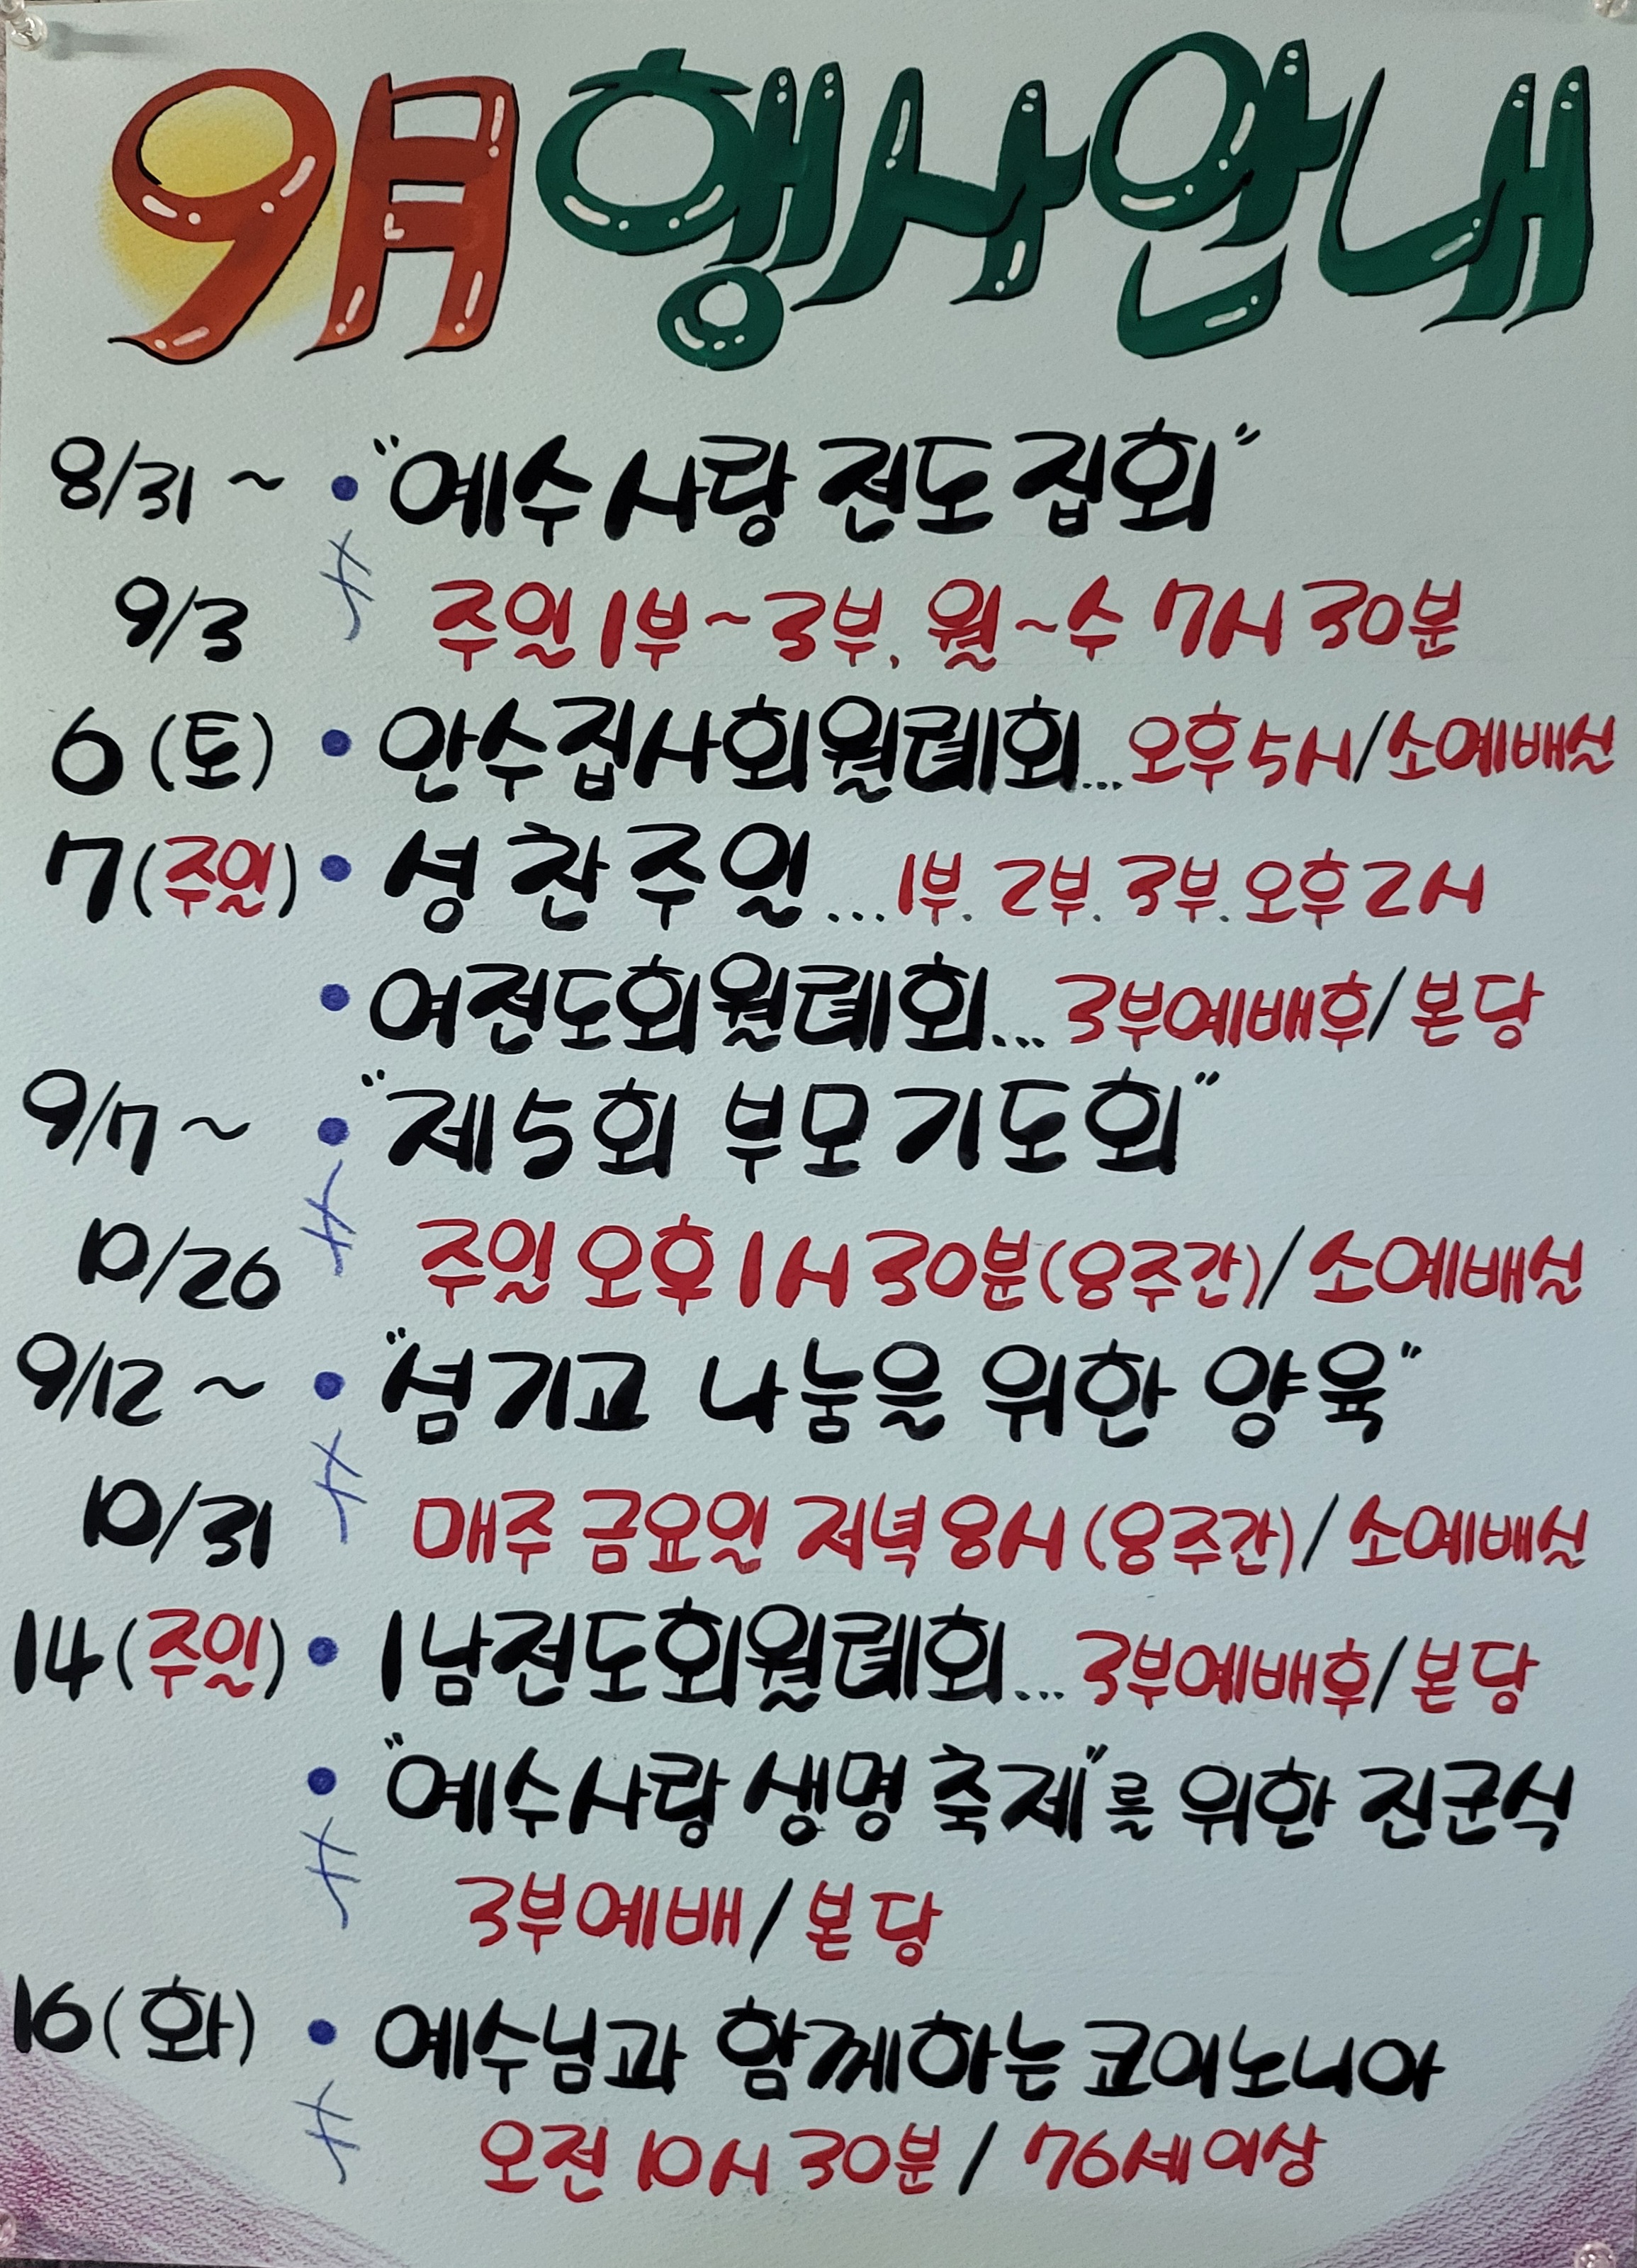 9月 행사안내
8/31 ~ • "예수사랑 전도집회"
9/3 주일 1부~3부, 월~수 7시 30분
6(토) • 안수집사회월례회... 오후5시/소예배실
7(주일) • 성찬주일... 1부. 2부. 3부. 오후 2시
• 여전도회월례회... 3부예배후/본당
9/7 ~ • "제5회 부모기도회"
10/26 주일 오후 1시 30분(8주간)/소예배실
9/12 ~ • "섬기고 나눔을 위한 양육"
10/31 매주 금요일 저녁 8시(8주간)/소예배실
14(주일) • 1남전도회월례회... 3부예배후/본당
• "예수사랑 생명 축제"를 위한 진군식
3부예배/본당
16(화) • 예수님과 함께하는 코이노니아
오전 10시 30분/76세이상